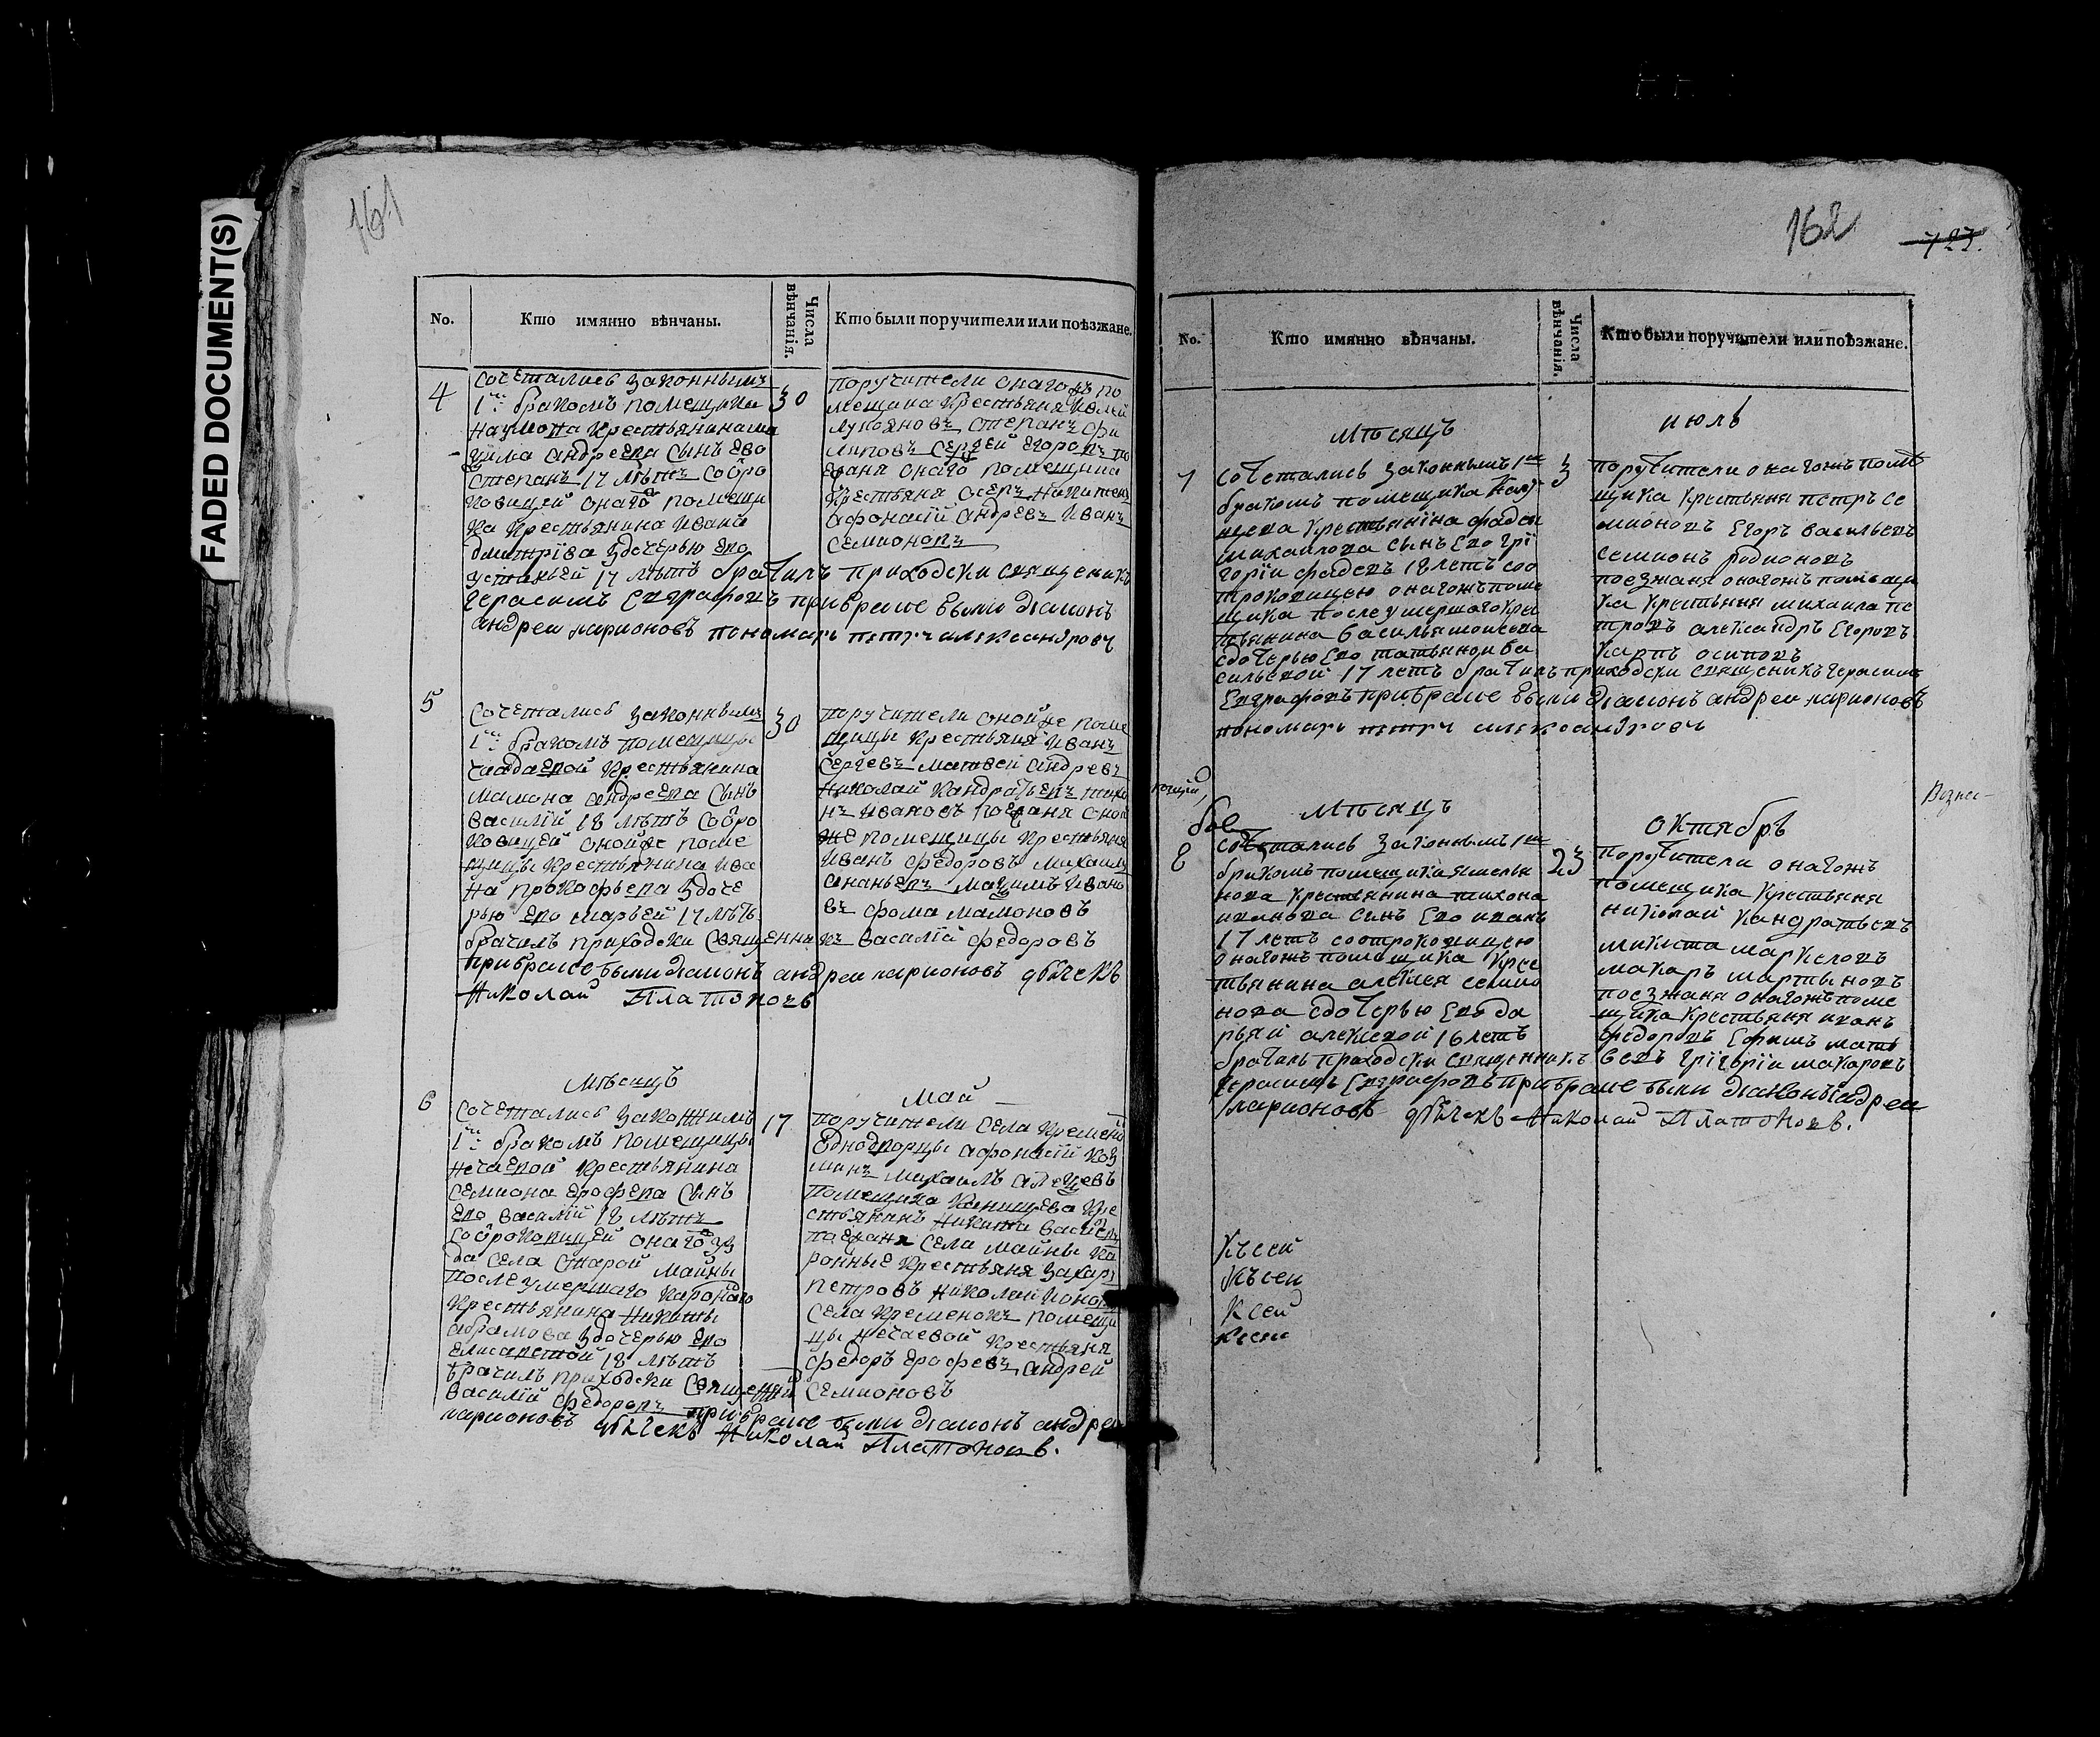 FADED DOCUMENT(S)
161
No.
Кто имянно вѣнчаны.
Числа вѣнчанія.
Кто были поручители или поѣзжане.
4
сочетались законнымъ
1м бракомъ помещика
наумова крестьянина
андреева сынъ ево
степанъ 17 лѣтъ со отро
ковицей онаго помещи
ка крестьянина ивана
дмитріва здочерью ево
устиньей 17 лѣтъ брачилъ приходски священикъ
герасимъ евграфовъ прибраке были диаконъ
андреи ларионовъ пономарь петръ александровъ
30
поручители онагожъ по
мещика крестьяня
лукояновъ степанъ фи
липовъ сергей егоровъ по
езжаня онаго помещика
крестьяня осепъ никитенъ
афонасій андревъ иванъ
семионовъ
5
сочетались законнымъ
1м бракомъ помещицы
чаадаевой крестьянина
мамона андреева сынъ
василій 18 лѣтъ со отро
ковицей онойже поме
щицы крестьянина ива
на прокофьева здоче
рью ево марьей 17 лѣтъ
брачилъ приходски священникъ василій федоровъ
прибраке были диаконъ андреи ларионовъ дьячекъ
николаи Платоновъ
30
поручители онойже поме
щицы крестьяня иванъ
сергевъ матвей андревъ
николай кандратьевъ тихо
нъ ивановъ поезжаня оной
же помещицы крестьяня
иванъ федоровъ михаилъ
ананьевъ мазимъ ивано
въ фома мамоновъ
6
Мѣсяцъ май
сочетались законнымъ
1м бракомъ помещицы
нечаевой крестьянина
семиона ерофева сынъ
ево василій 18 лѣтъ
со отроковицей онагож уез
да села старой майны
после умершаго каронаго
крестьянина никиты
абрамова здочерью ево
елисаветой 18 лѣтъ
брачилъ приходски священни
василій федоровъ прибраке были диаконъ андреи
ларионовъ дьячекъ николаи Платоновъ.
17
поручители села кременокъ
однодворцы афонасій коз
минъ михаилъ
помещика кре
стьянинъ никита
поезжаня села майны ка
ронные крестьяня захаръ
петровъ николай
села кременокъ помещи
цы нечаевой крестьяня
федоръ ерофевъ андрей
семионовъ
162
723.
No.
Кто имянно вѣнчаны.
Числа вѣнчанія.
Кто были поручители или поѣзжане.
Мѣсяцъ июль
7
сочетались законнымъ 1м
бракомъ помещика
крестьянина фадеи
михаилова сынъ ево грі
горіи фадевъ 18 летъ соо
троковицею онагожъ поме
щика после умершаго кре
стьянина василья моисеева
сдочерью ево татьяной ва
сильевой 17 летъ брачилъ приходски священикъ герасимъ
Евграфовъ прибраке были диаконъ андреи ларионовъ
пономарь петръ александровъ
3
поручители онагожъ поме
щика крестьяня петръ се
мионовъ егоръ васильевъ
семионъ родионовъ
поезжаня онагожъ помещи
ка крестьяня михаила пе
тровъ александръ егоровъ
карпъ осиповъ
Мѣсяцъ октябрь
8
сочетались законнымъ 1м
бракомъ помещика
крестьянина тихона
иванова сынъ ево иванъ
17 летъ соотроковицею
онагожъ помещика кресе
тьянина алексея семио
нова сдочерью ево да
рьяй алексевой 16 летъ
брачилъ приходски священникъ
герасимъ Евграфовъ прибраке были диаконъ андреи
ларионовъ дьячекъ николаи Платоновъ.
23
поручители онагожъ
помещика крестьяня
николай кандратьевъ
микита маркеловъ
макаръ мартыновъ
поезжаня онагожъ поме
щика крестьяня иванъ
федоровъ ефимъ мать
вевъ григорій макаровъ
Къ сей
Къ сей
К сей